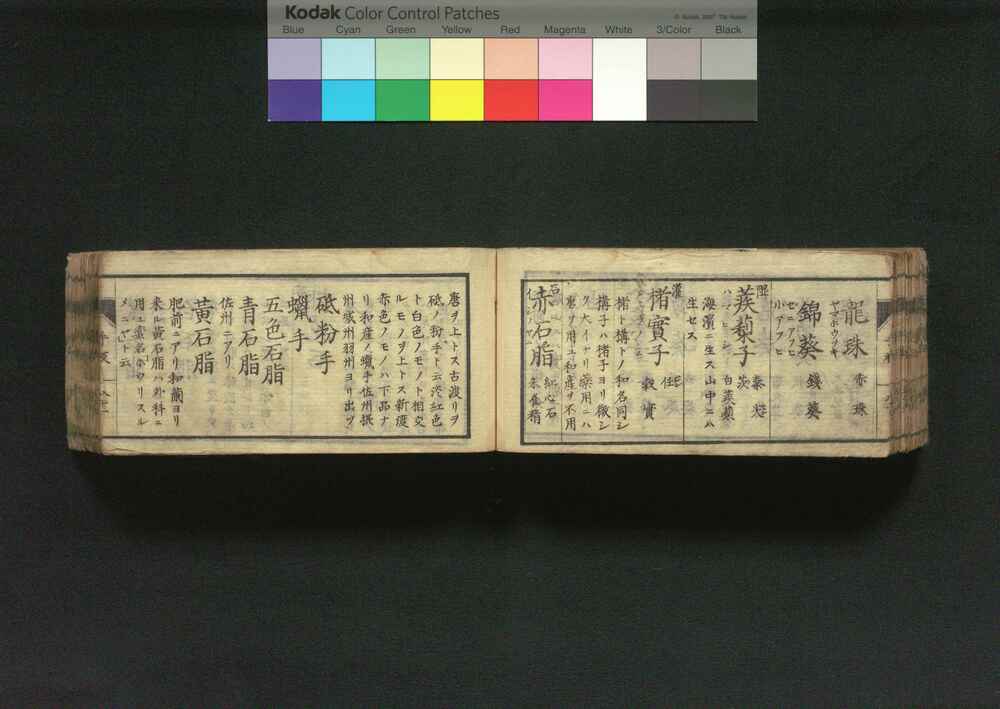 Kodak Color Control Patches
Blue Cyan Green Yellow Red Magenta White 3/Color Black
龍珠 赤珠
錦葵 錢葵
セニアフヒ
小アフヒ
蒺蔾子
茨 白蒺藜
海濱ニ生ス山中ニハ
生セス
楮實子 穀實
楮ト構トノ和名同シ
構子ハ楮子ヨリ微シ
ク大イナリ藥用ニハ
重ヲ用ユ和産ヲ不用
赤石脂 紅心石
朱雀精
唐ヲ上トス古渡リヲ
砥ノ粉手ト云淡紅色
ト白色ノモノト相交
ルモノヲ上トス新渡
赤色ノモノハ下品ナ
リ和産ノ蠟手佐州攝
州城州羽州ヨリ出ヅ
砥粉手
蠟手
五色石脂
青石脂
佐州ニアリ
黄石脂
肥前ニアリ和蘭ヨリ
来ル黄石脂ハ外科ニ
用ユ